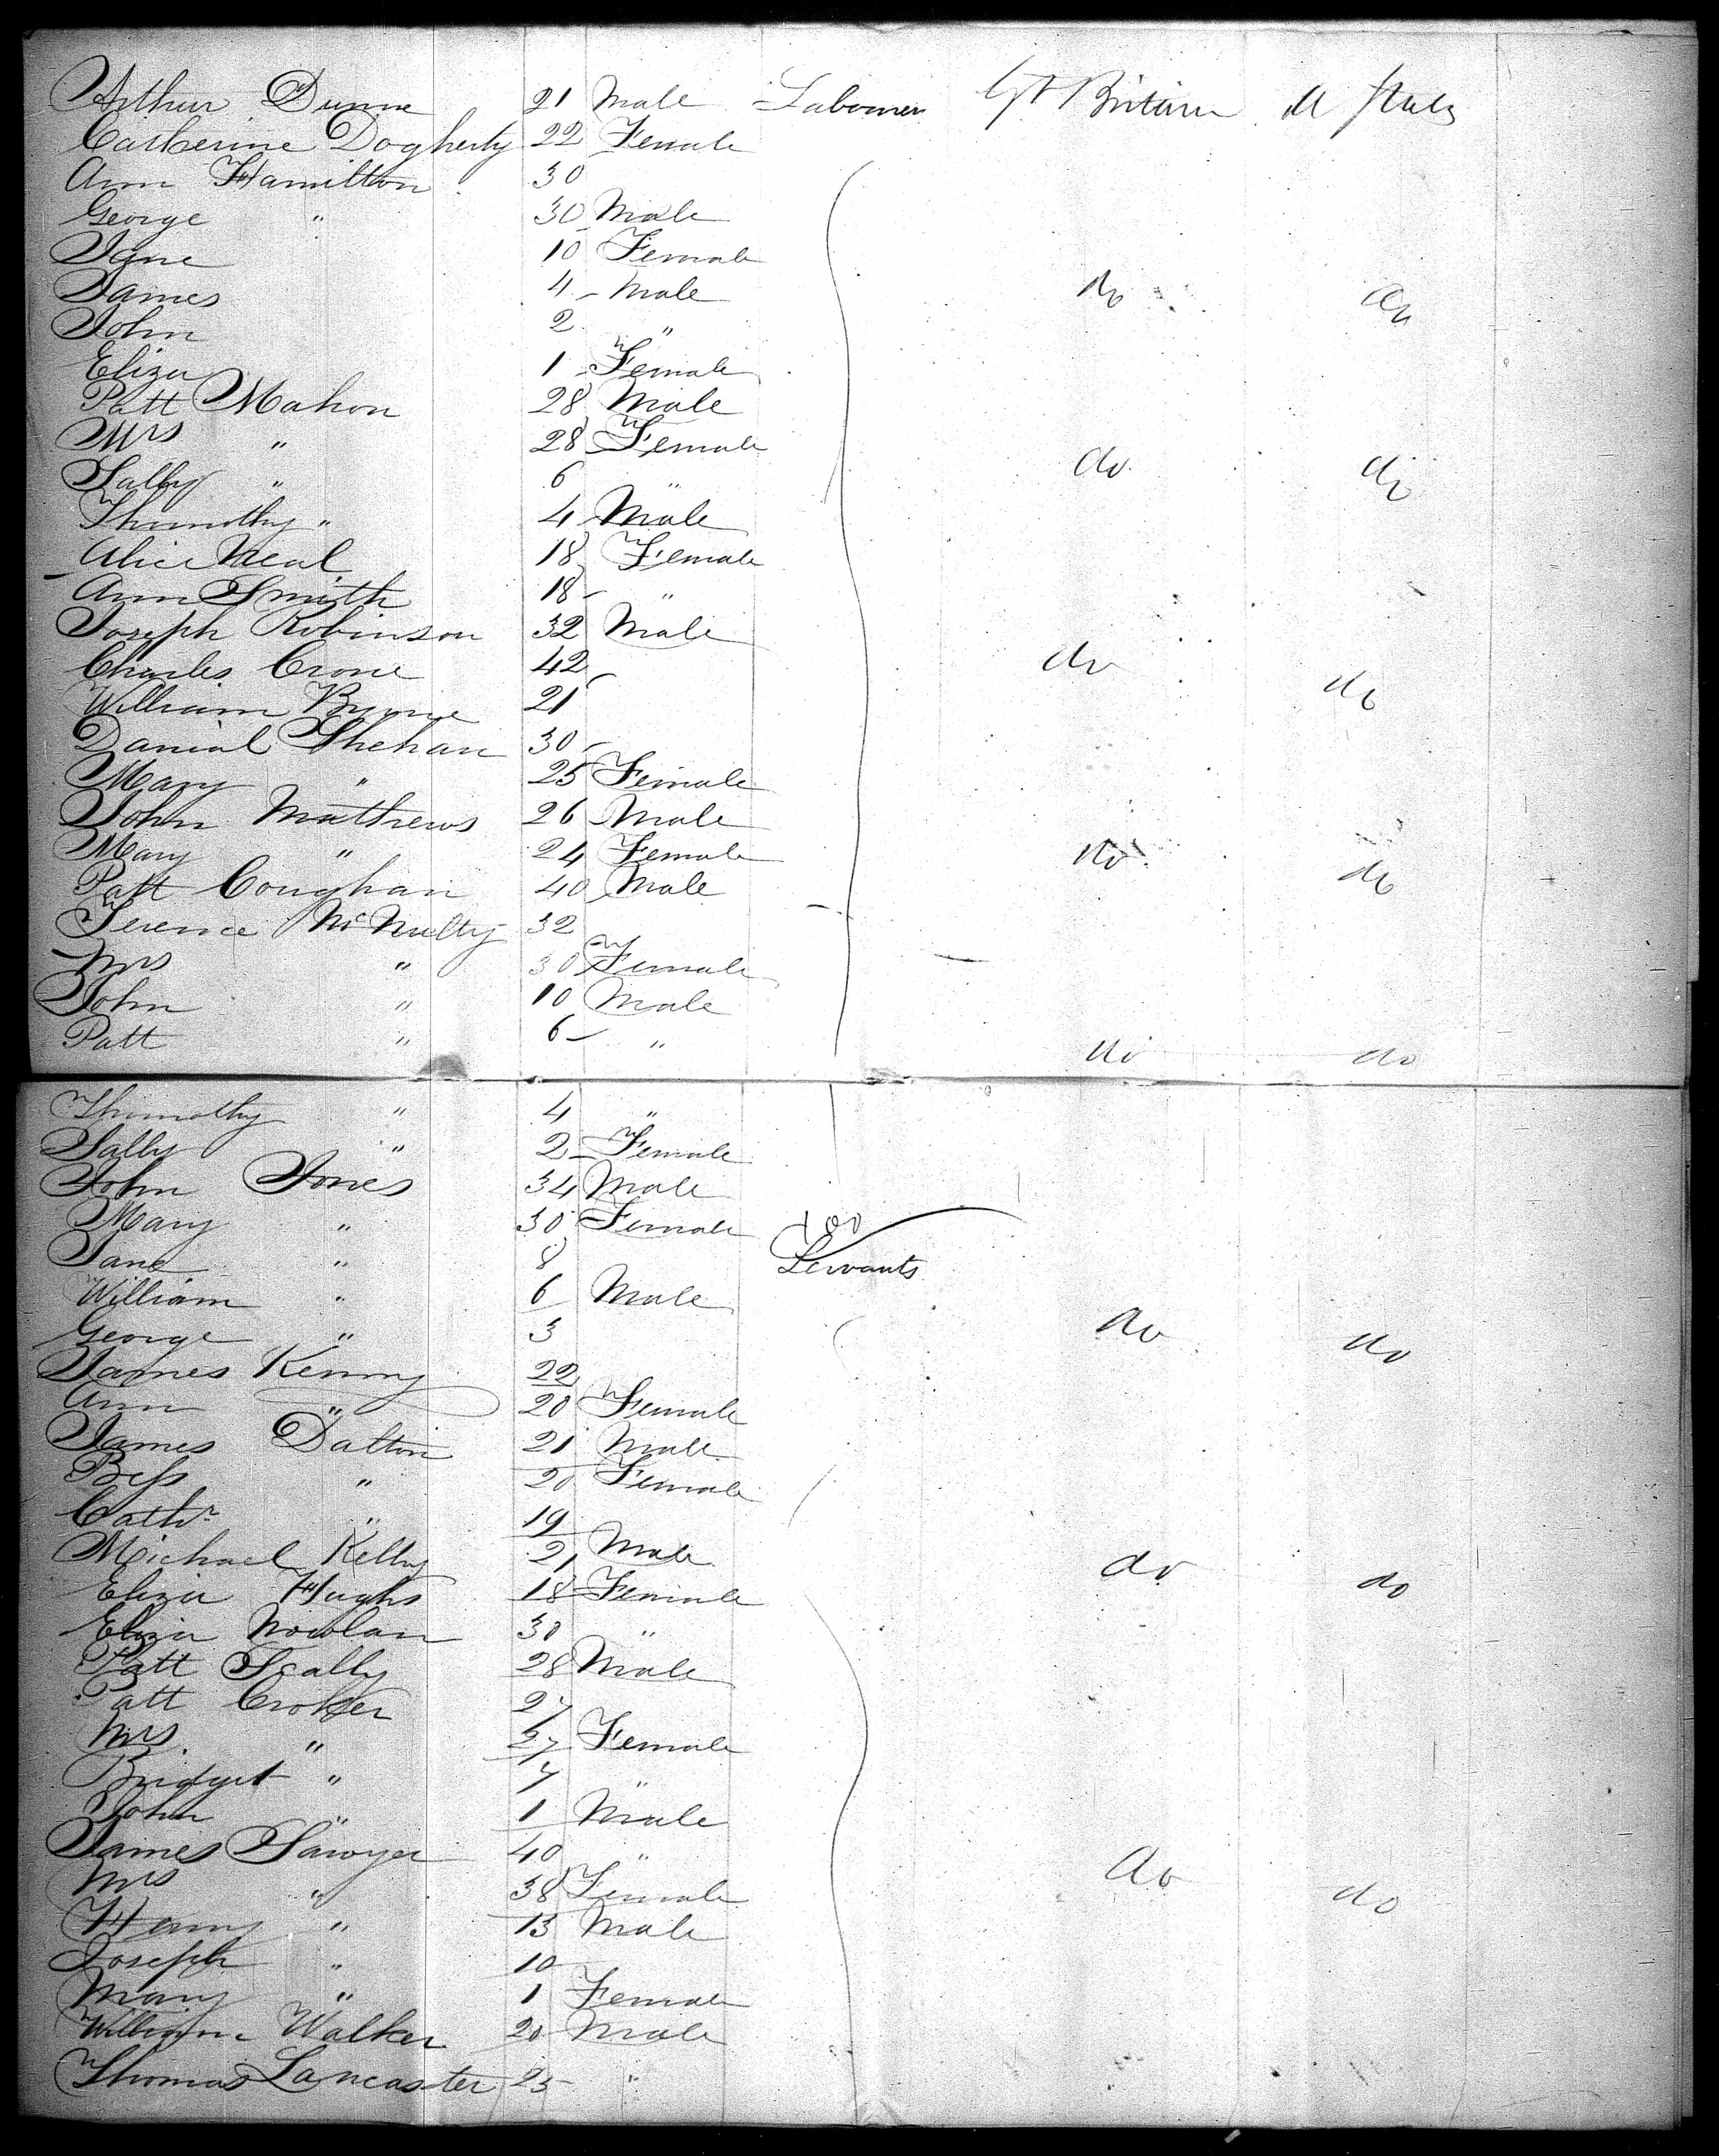 Arthur Dunne 21 Male Labourer Gt Britain U States
Catherine Dogherty 22 Female
Ann Hamilton 30
George " 30 Male
Jane 10 Female
James 4 Male do do
John 2 "
Eliza 1 Female
Patt Mahon 28 Male
Mrs " 28 Female do do
Sally " 6 "
Thimothy " 4 Male
Alice Neal 18 Female
Ann Smith 18 "
Joseph Robinson 32 Male
Charles Crone 42 do do
William Byrne 21
Danial Shehan 30
Mary " 25 Female
John Mathews 26 Male
Mary " 24 Female do do
Patt Coughan 40 Male
Terence McNulty 32
Mrs " 30 Female
John " 10 Male
Patt " 6 " do do
Thimothy " 4 "
Sally " 2 Female
John Jones 34 Male
Mary " 30 Female
Jane " 8 Servants
William " 6 Male do do
George " 3
James Kenny 22
Ann " 20 Female
James Dalton 21 Male
Bess " 20 Female
Cathr " 19
Michael Kelly 21 Male do do
Eliza Hughs 18 Female
Eliza Nowlan 30 "
Patt Scally 28 Male
Patt Croker 27
Mrs " Female
Bridget " 7 "
John " 1 Male
James Sawyer 40 " do do
Mrs " 38 Female
Henry " 13 Male
Joseph " 10
Mary " 1 Female
William Walker 20 Male
Thomas Lancaster 25 "